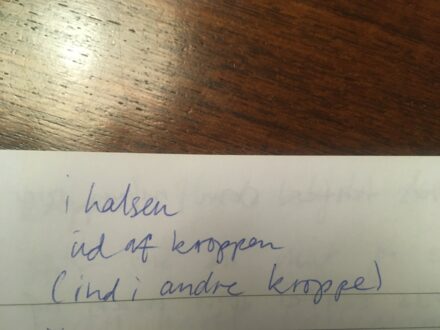 i halsen
ud af kroppen
(ind i andre kroppe)